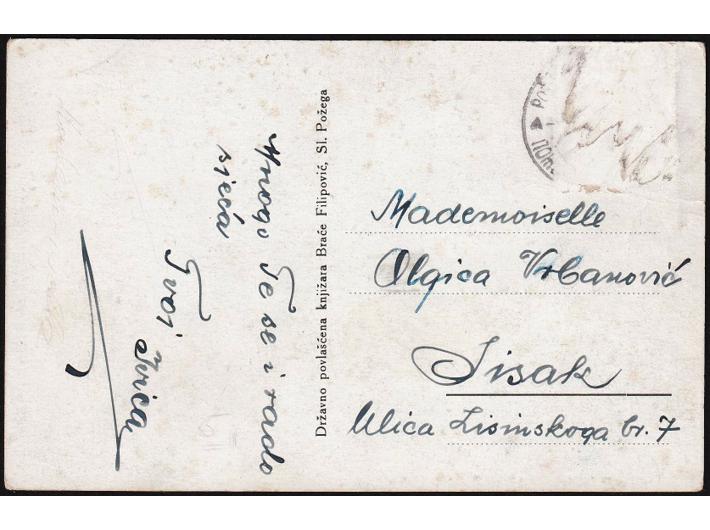 Mnogo Te se i rado
sjeća
Tvoj Ivica
Državno povlašćena knjižara Braće Filipović, Sl. Požega
Mademoiselle
Olgica Vrbanović
Sisak
Ulica Lisinskoga br. 7